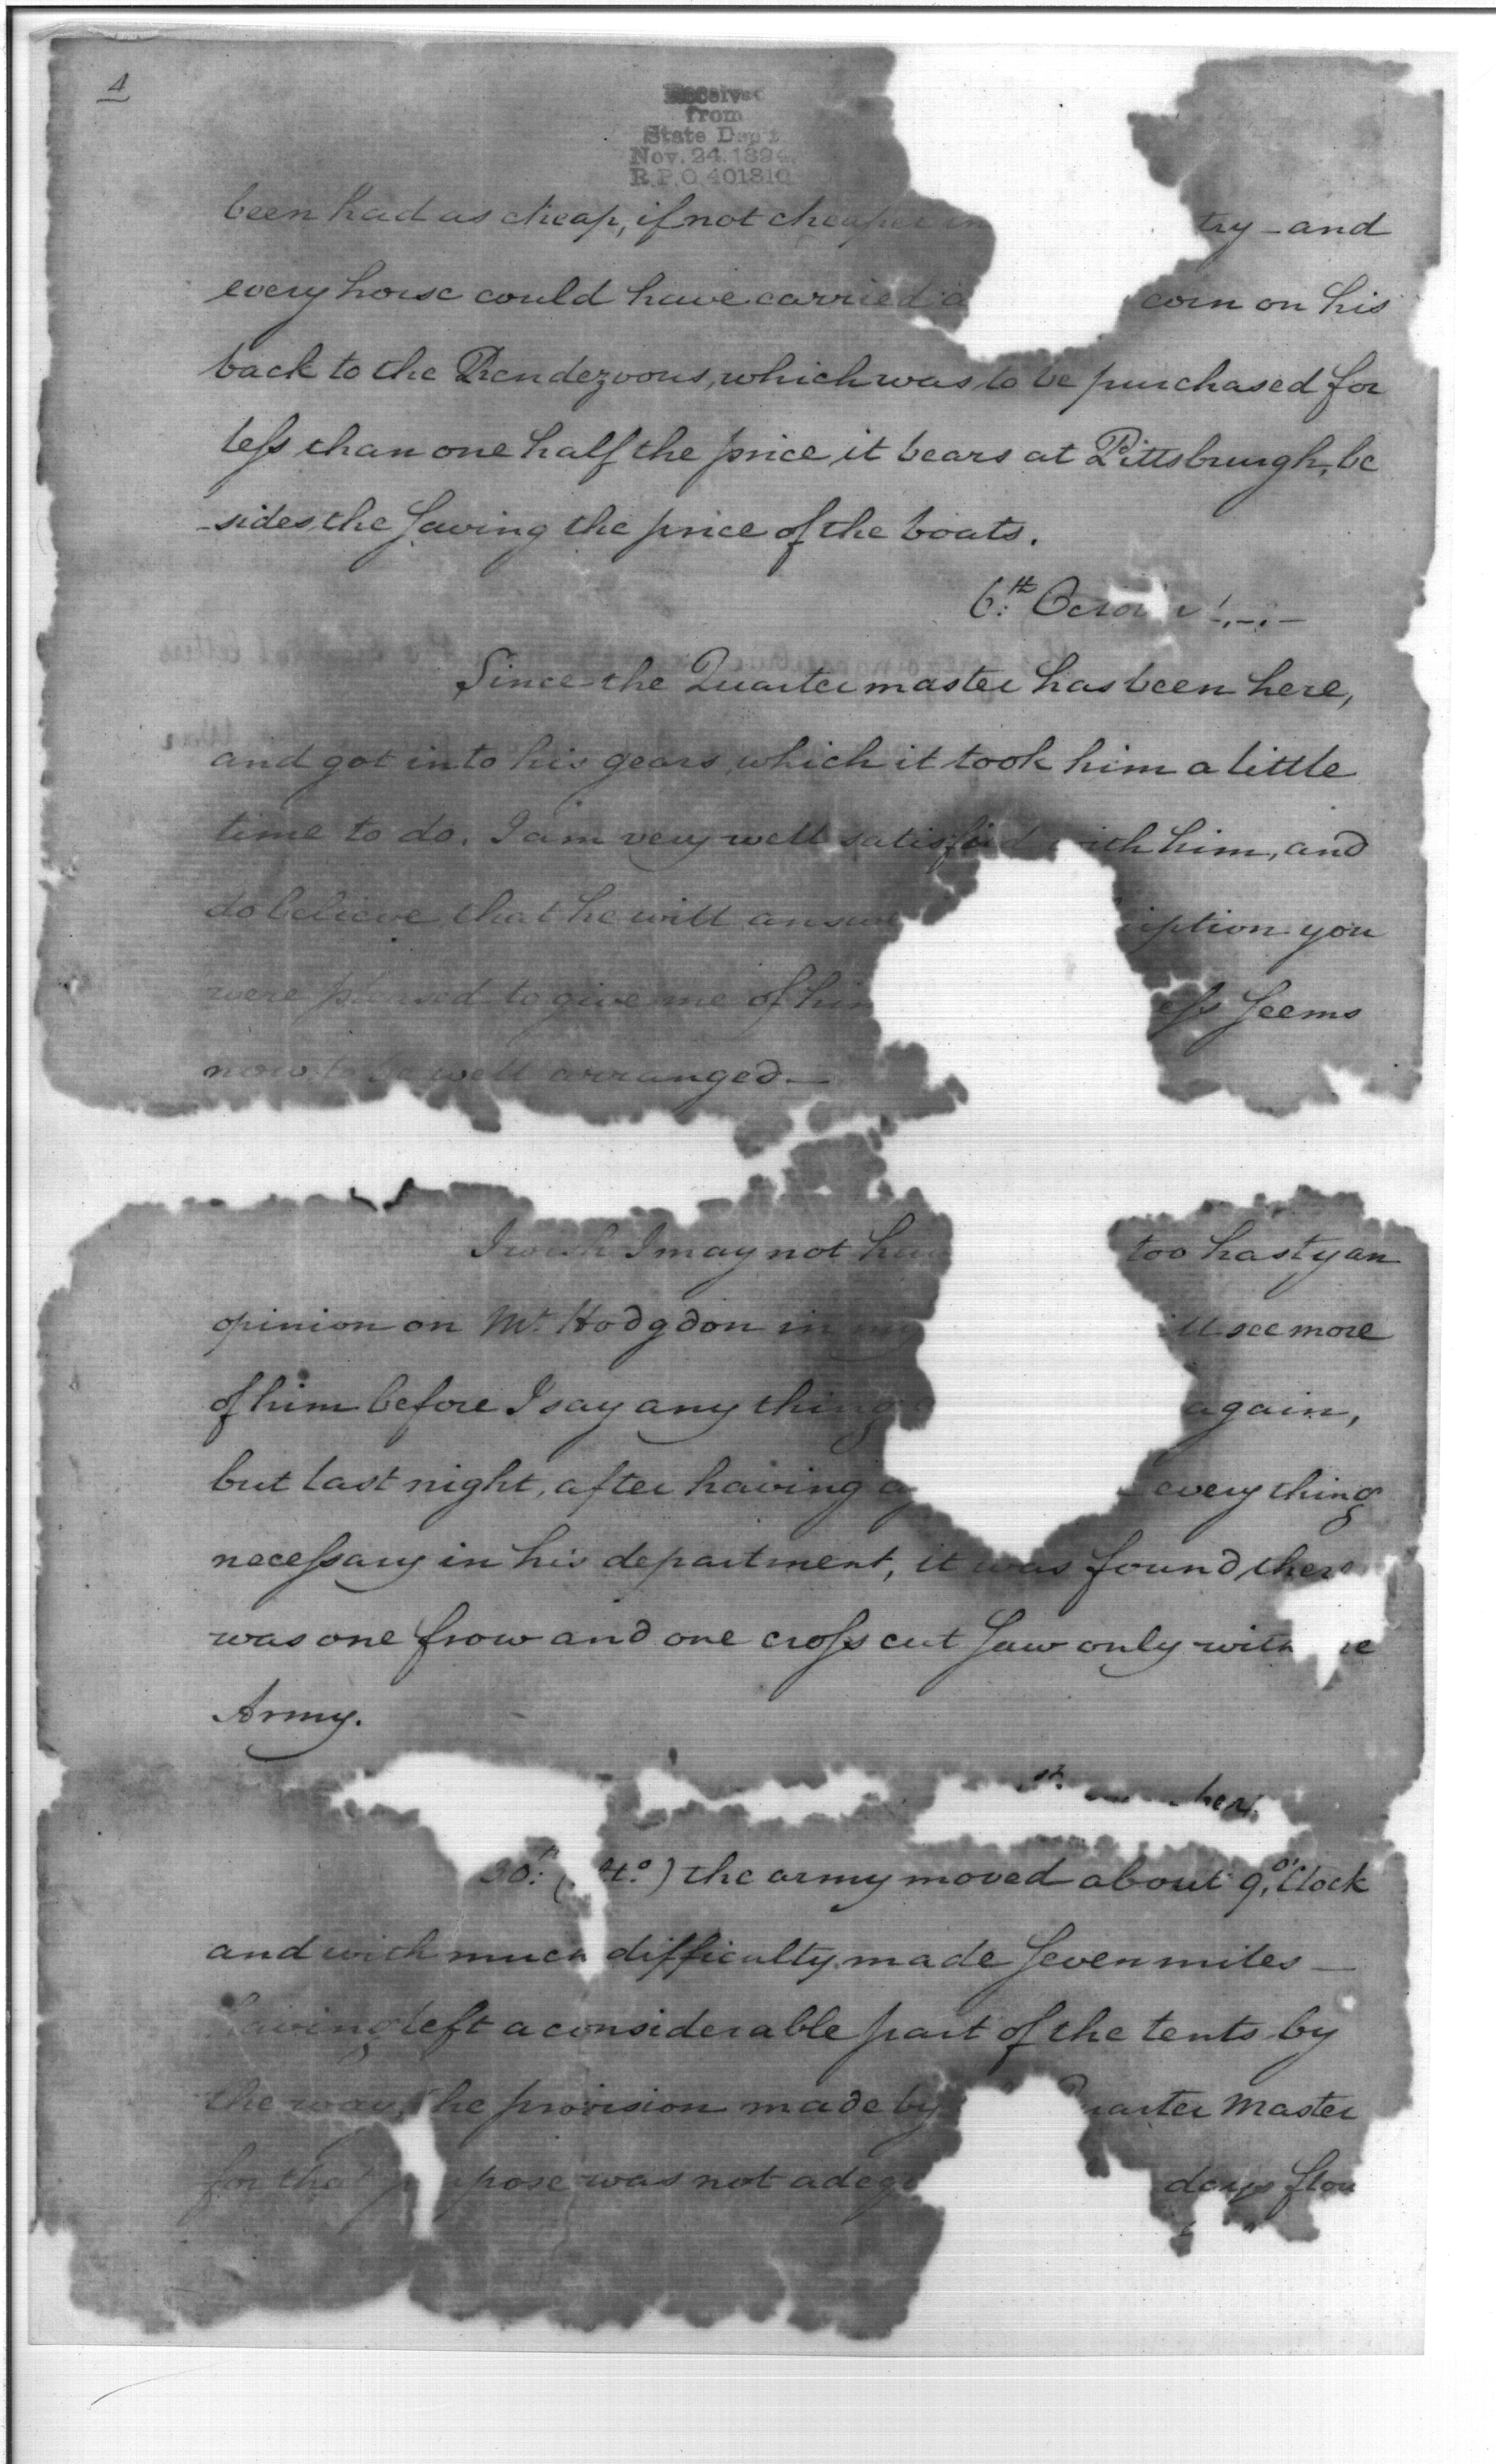 4
Received
from
State Dep't
Nov. 24. 1894.
R.P.O. 401810
been had as cheap, if not cheaper in try - and
every horse could have carried a corn on his
back to the Rendezvous, which was to be purchased for
less than one half the price it bears at Pittsburgh, be
-sides the saving the price of the boats.
6th
Since the Quartermaster has been here,
and got into his gears, which it took him a little
time to do, I am very well satisfied with him, and
do believe that he will iption you
were pleased to give me of him ess seems
now to be well arranged. —
I wish I may not too hasty an
opinion on Mr. Hodgdon in my ill see more
of him before I say any thing again,
but last night, after having every thing
necessary in his department, it was found there
was one frow and one cross cut saw only with
Army.
30th. (. 4o.) the army moved about 9, o'Clock
and with much difficulty, made seven miles —
having left a considerable part of the tents by
the way, the provision made by Quarter Master
for that purpose was not days flou